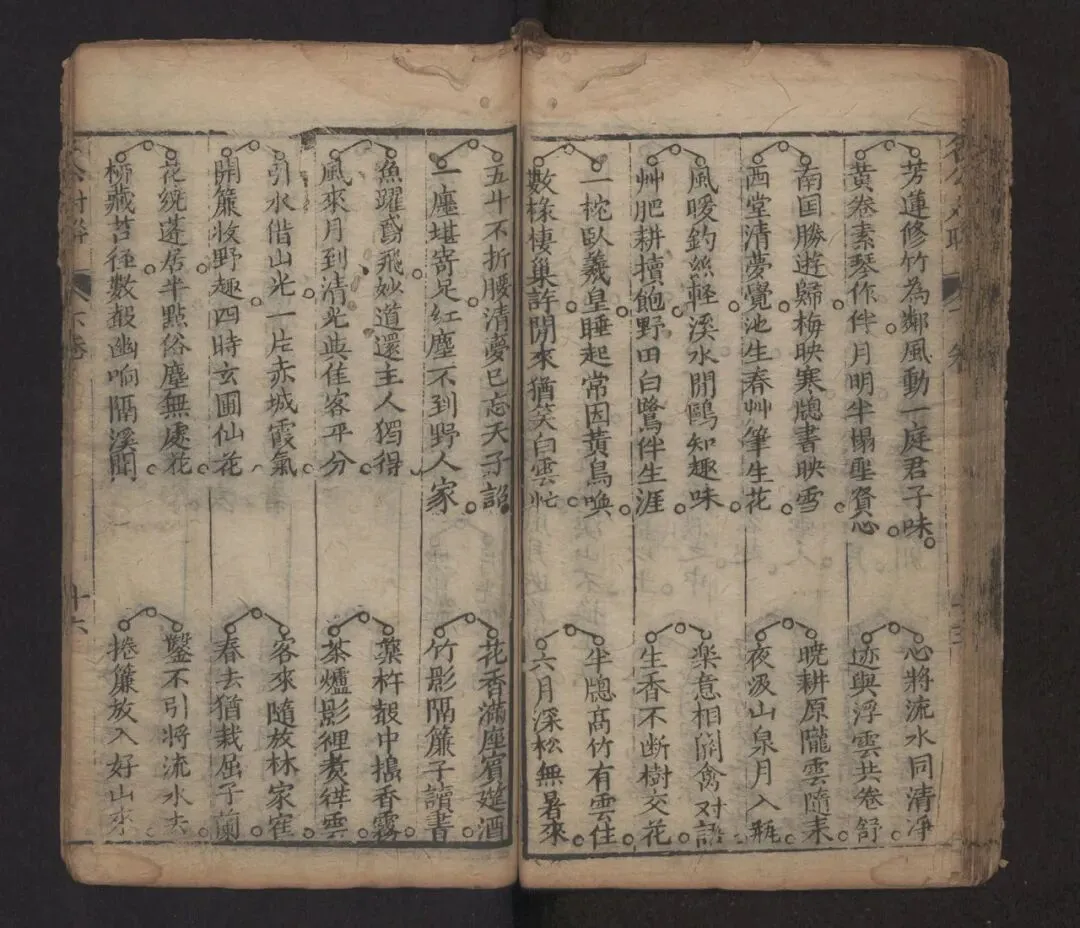 芳蓮修竹為鄰風動一庭君子味
黃卷素琴作伴月明半榻聖賢心
南国勝遊歸梅映寒牕書映雪
西堂清夢覺池生春艸筆生花
風暖釣絲軽溪水閒鷗知趣味
艸肥耕犢飽野田白鷺伴生涯
一枕臥羲皇睡起常因黃鳥喚
數椽棲巢許閒來猶笑白雲忙
心將流水同清凈
迹與浮雲共卷舒
曉耕原隴雲隨耒
夜汲山泉月入瓶
楽意相関禽对語
生香不断樹交花
半牕高竹有雲住
六月深松無暑來
五斗不折腰清夢已忘天子詔
一廛堪寄足紅塵不到野人家
魚躍鳶飛妙道還主人獨得
風來月到清光與佳客平分
引水借山光一片赤城霞氣
開簾收野趣四時玄圃仙花
花繞蓬居半點俗塵無處花
橋藏苔徑數聲幽响隔溪聞
花香滿座賓筵酒
竹影隔簾子讀書
藥杵聲中搗香霧
茶爐影裡煮祥雲
客來隨放林家寉
春去猶栽屈子蘭
鑿不引將流水去
捲簾放入好山來
六卷
十六